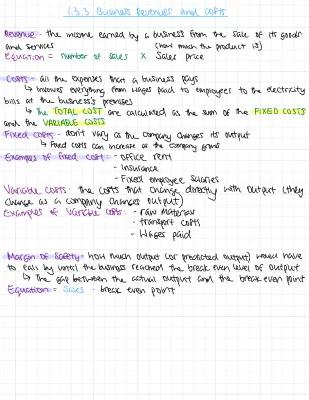 1.3.3 Business Revenues and Costs
Revenue - the income earned by a business from the sale of its goods
and services (how much the product is)
Equation = number of sales x sales price
Costs - all the expenses that a business pays
↳ Involves everything from wages paid to employees to the electricity
bills at the business's premises
↳ the TOTAL COST are calculated as the sum of the FIXED COSTS
and the VARIABLE COSTS
Fixed costs - don't vary as the company changes its output
↳ Fixed costs can increase as the company grows
Examples of Fixed cost: - office rent
- insurance
- Fixed employee salaries
Variable costs - the costs that change directly with output (they
change as a company changes output)
Examples of Variable costs: - raw material
- transport costs
- wages paid
Margin of Safety - how much output (or predicted output) would have
to fall by until the business reached the break even level of output
↳ The gap between the actual output and the break even point
Equation = Sales - break even point